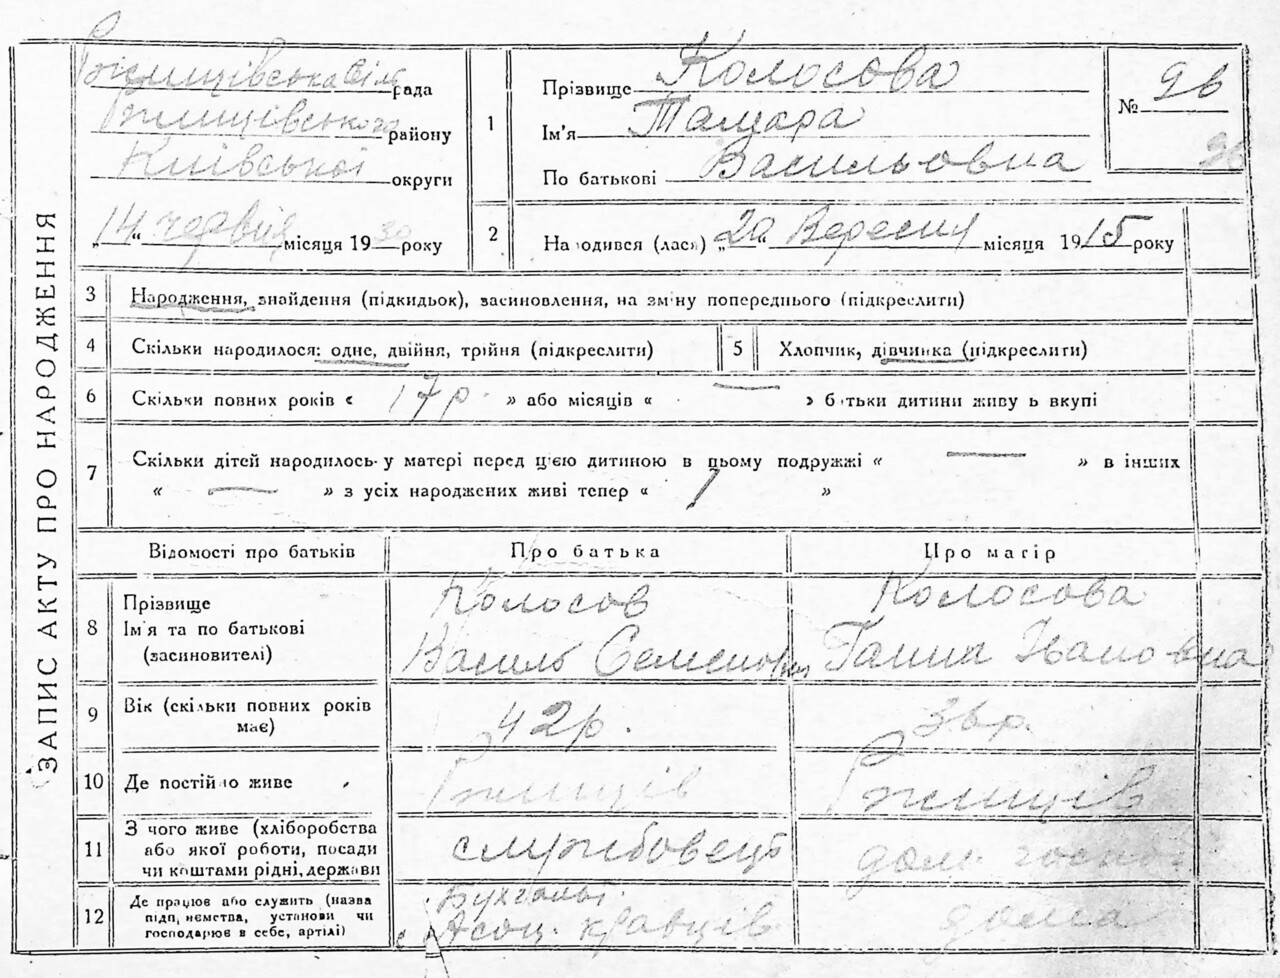 ЗАПИС АКТУ ПРО НАРОДЖЕННЯ
Ржищівська сіль рада
Ржищівського району
Київської округи
„14" червня місяця 1930 року
1
Прізвище Колосова
Ім'я Тамара
По батькові Васильовна
№ 96
96
2
Народився (лась) „20" Вересня місяця 1915 року
3 Народження, знайдення (підкидьок), засиновлення, на зміну попереднього (підкреслити)
4 Скільки народилося: одне, двійня, трійня (підкреслити)
5 Хлопчик, дівчинка (підкреслити)
6 Скільки повних років « 17 р. » або місяців « — » батьки дитини живуть вкупі
7 Скільки дітей народилось у матері перед цією дитиною в цьому подружжі « — » в інших
« — » з усіх народжених живі тепер « 1 »
Відомості про батьків
Про батька
Про матір
8
Прізвище
Ім'я та по батькові
(засиновителі)
Колосов
Василь Семенович
Колосова
Ганна Івановна
9
Вік (скільки повних років
має)
42 р.
36 р.
10 Де постійно живе
Ржищів
Ржищів
11
З чого живе (хліборобства
або якої роботи, посади
чи коштами рідні, держави
службовець
дом. госпо
12
Де працює або служить (назва
підприємства, установи чи
господарює в себе, артілі)
Бухгальт.
Асоц. кравців
дома